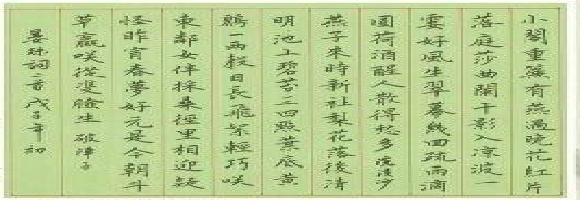 小閣重簾有燕過晚花紅片
落庭莎曲闌干影入涼波一
霎好風生翠幕幾回疏雨滴
圓荷酒醒人散得愁多浣溪沙
燕子來時新社梨花落後清
明池上碧苔三四點葉底黃
鸝一兩聲日長飛絮輕巧咲
東鄰女伴採桑徑里相迎疑
怪昨宵春夢好元是今朝斗
草贏咲從雙臉生破陣子
晏殊詞二首戊子年初